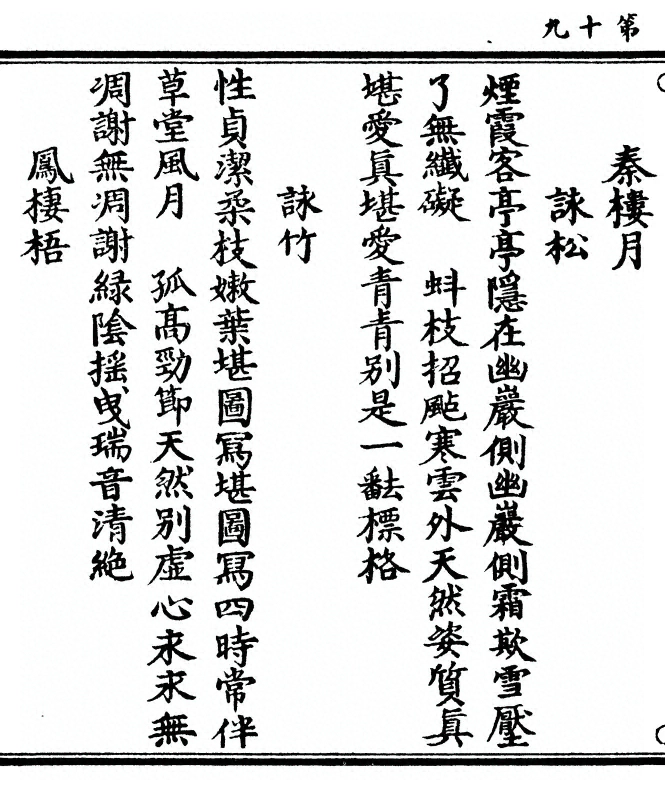 第十九
秦樓月
詠松
煙霞客亭亭隱在幽巖側幽巖側霜欺雪壓
了無纖礙　蚪枝招颭寒雲外天然姿質眞
堪愛眞堪愛青青别是一標格
詠竹
性貞潔柔枝嫩葉堪圖冩堪圖冩四時常伴
草堂風月　孤髙勁節天然别虛心永永無
凋謝無凋謝緑陰揺曵瑞音清絶
鳳棲梧